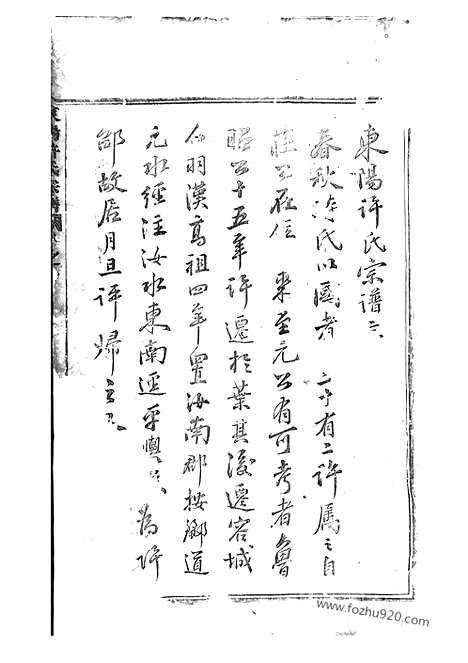 東陽許氏宗譜
春秋許氏以國者 有二許 自
莊公在位 至元公有可考者魯
昭公十五年許遷於葉其後遷容城
羽漢高祖四年置汝南郡按酈道
元水經注汝水東南逕平輿 為許
邵故居月旦評歸
東陽許氏宗譜
www.fozhu920.com